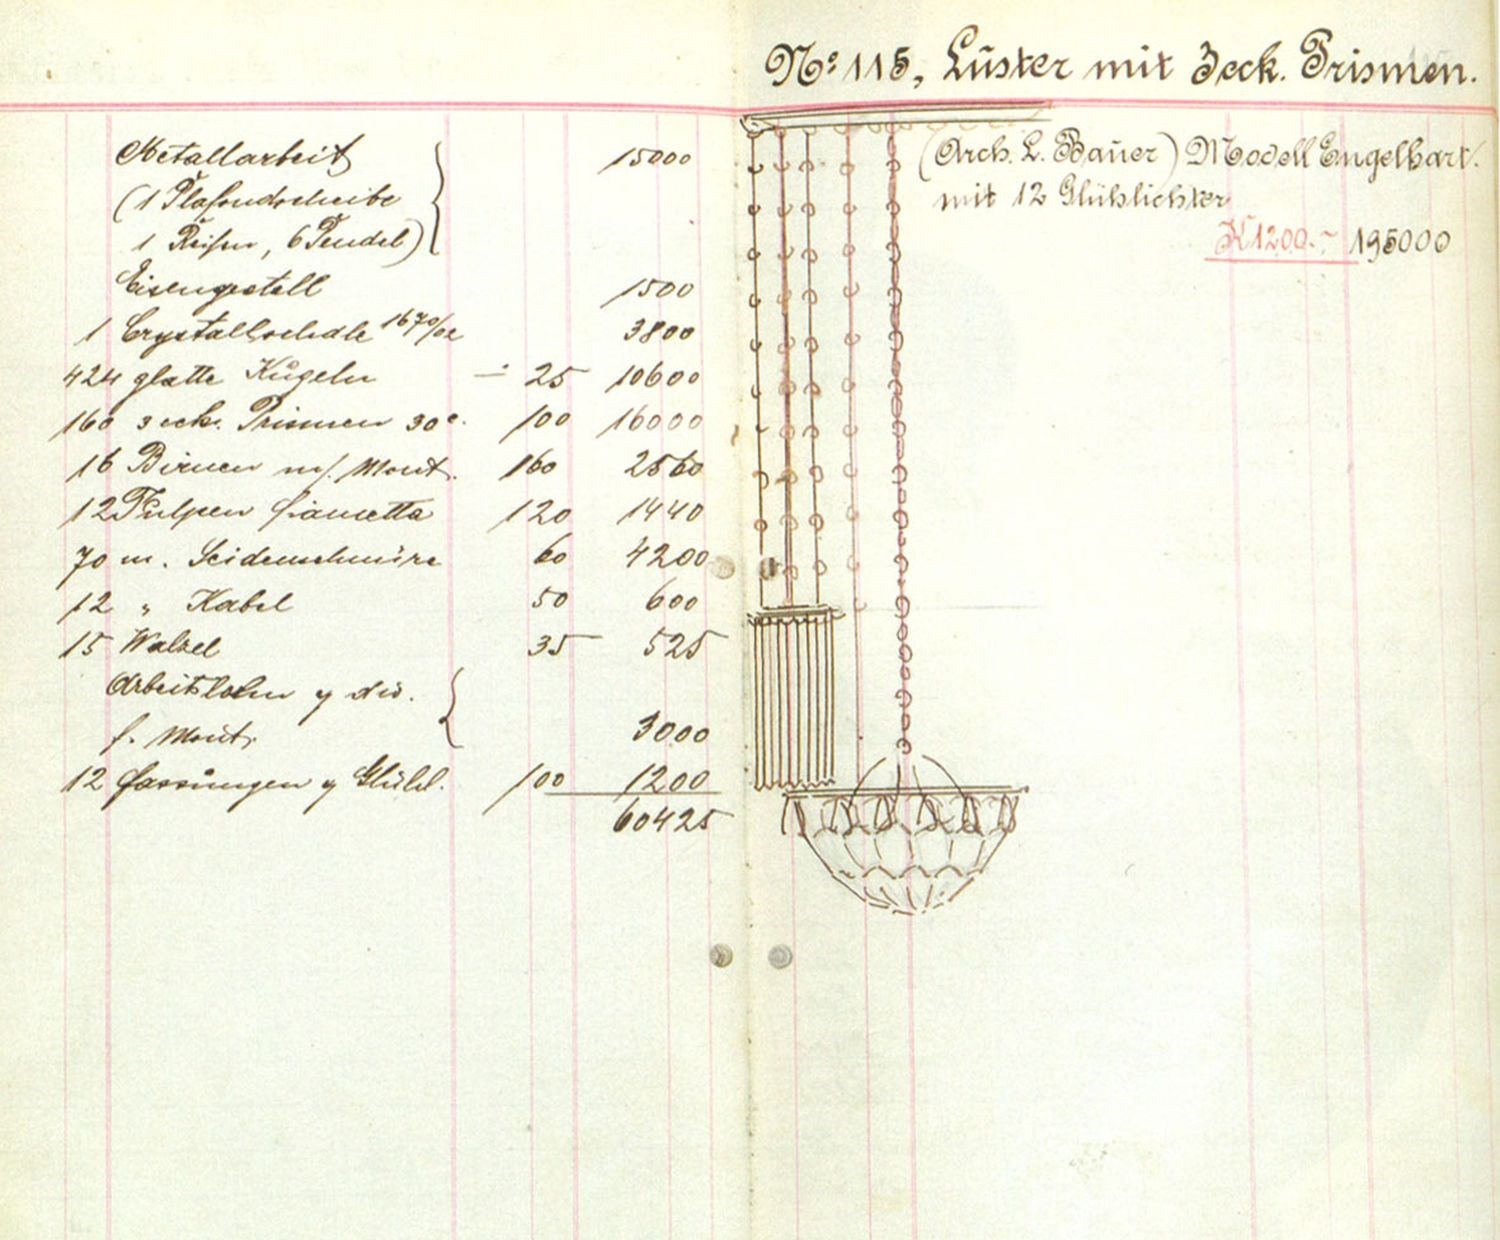 Nº 115, Lüster mit 3eck. Prismen.
Metallarbeit 15000
(1 Plafondscheibe
1 Reifen, 6 Pendel)
Eisengestell 1500
1 Crystallschale 1670/02 3800
424 glatte Kugeln 25 10600
160 3 eck. Prismen 30c. 100 16000
16 Birnen m/. Mont. 160 2560
12 Tulpen fiametta 120 1440
70 m. Seidenschnüre 60 4200
12 " Kabel 50 600
15 Walzel 35 525
Arbeitslohn & div.
f. Mont. 3000
12 Fassungen & Glühl. 100 1200
60425
(Arch. L. Bauer) Modell Engelhart.
mit 12 Glühlichter
K 1200.- 195000